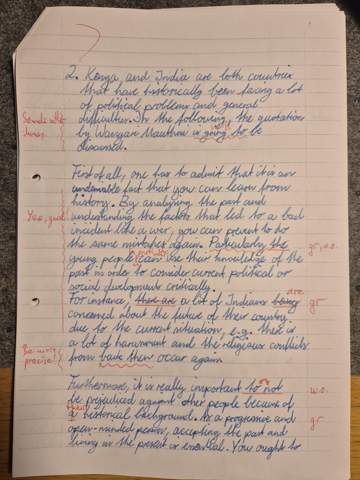 2. Kenya and India are both countries
that have historically been facing a lot
of political problems and general
difficulties. In the following, the quotation
by Wanjari is going to be
discussed.
First of all, one has to admit that it is an
undeniable fact that you can learn from
history. By analysing the past and
Yes, good
understanding the factors that led to a bad
incident like a war, you can prevent to do
the same mistakes again. Particularly the
gr., w.o.
young people can use their knowledge of the
past in order to consider current political or
social developments critically.
For instance, there are a lot of Indians being
are
gr
concerned about the future of their country
due to the current situation, e.g. there is
a lot of harassment and the religious conflicts
Be more precise!
from back then occur again.
Furthermore, it is really important to not
w.o.
be prejudiced against other people because of
their
a historical background. As a progressive and
gr
open-minded person, accepting the past and
living in the present is essential. You ought to